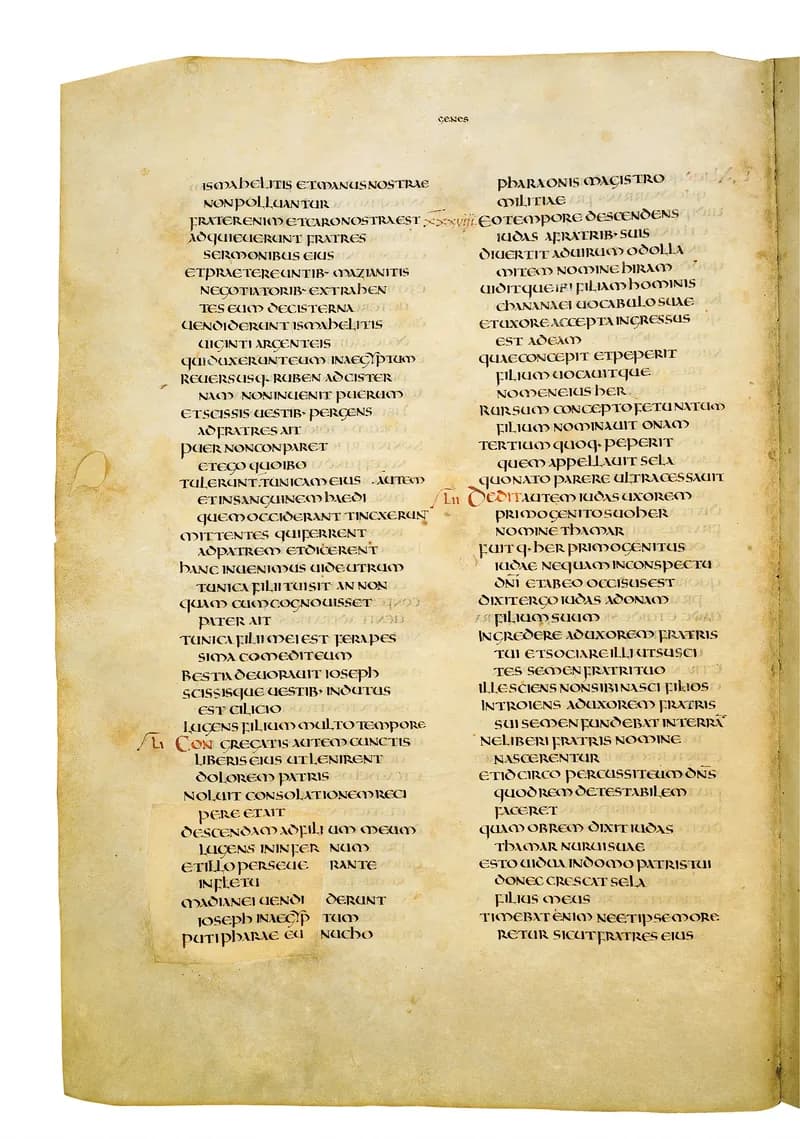 GENES
ISMAHELITIS ETMANUS NOSTRAE
NON POLLUANTUR
FRATER ENIM ET CARO NOSTRA EST
ADQUIEUERUNT FRATRES
SERMONIBUS EIUS
ET PRAETEREUNTIB· MAZIANITIS
NEGOTIATORIB· EXTRAHEN
TES EUM DE CISTERNA
UENDIDERUNT ISMAHELITIS
UIGINTI ARGENTEIS
QUI DUXERUNT EUM IN AEGYPTUM
REUERSUSQ· RUBEN AD CISTER
NAM NON INUENIT PUERUM
ET SCISSIS UESTIB· PERGENS
AD FRATRES AIT
PUER NON CONPARET
ET EGO QUO IBO
TULERUNT TUNICAM EIUS AUTEM
ET IN SANGUINEM HAEDI
QUEM OCCIDERANT TINCXERUNT
MITTENTES QUI FERRENT
AD PATREM ET DICERENT
HANC INUENIMUS UIDE UTRUM
TUNICA FILII TUI SIT AN NON
QUAM CUM COGNOUISSET
PATER AIT
TUNICA FILII MEI EST FERA PES
SIMA COMEDIT EUM
BESTIA DEUORAUIT IOSEPH
SCISSISQUE UESTIB· INDUTUS
EST CILICIO
LUGENS FILIUM MULTO TEMPORE
LI CONGREGATIS AUTEM CUNCTIS
LIBERIS EIUS UT LENIRENT
DOLOREM PATRIS
NOLUIT CONSOLATIONEM RECI
PERE ET AIT
DESCENDAM AD FILIUM MEUM
LUGENS IN INFERNUM
ET ILLO PERSEUERANTE
IN FLETU
MADIANEI UENDIDERUNT
IOSEPH IN AEGYPTUM
PUTIPHARAE EUNUCHO
PHARAONIS MAGISTRO
MILITIAE
XXXVIII EO TEMPORE DESCENDENS
IUDAS A FRATRIB· SUIS
DIUERTIT AD UIRUM ODOLLA
MITEM NOMINE HIRAM
UIDITQUE IBI FILIAM HOMINIS
CHANANAEI UOCABULO SUAE
ET UXORE ACCEPTA INGRESSUS
EST AD EAM
QUAE CONCEPIT ET PEPERIT
FILIUM UOCAUITQUE
NOMEN EIUS HER
RURSUM CONCEPTO FETU NATUM
FILIUM NOMINAUIT ONAM
TERTIUM QUOQ· PEPERIT
QUEM APPELLAUIT SELA
QUO NATO PARERE ULTRA CESSAUIT
LII DEDIT AUTEM IUDAS UXOREM
PRIMOGENITO SUO HER
NOMINE THAMAR
FUITQ· HER PRIMOGENITUS
IUDAE NEQUAM IN CONSPECTU
DN̄I ET AB EO OCCISUS EST
DIXIT ERGO IUDAS AD ONAM
FILIUM SUUM
INGREDERE AD UXOREM FRATRIS
TUI ET SOCIARE ILLI UT SUSCI
TES SEMEN FRATRI TUO
ILLE SCIENS NON SIBI NASCI FILIOS
INTROIENS AD UXOREM FRATRIS
SUI SEMEN FUNDEBAT IN TERRĀ
NE LIBERI FRATRIS NOMINE
NASCERENTUR
ET IDCIRCO PERCUSSIT EUM DN̄S
QUOD REM DETESTABILEM
FACERET
QUAM OBREM DIXIT IUDAS
THAMAR NURUI SUAE
ESTO UIDUA IN DOMO PATRIS TUI
DONEC CRESCAT SELA
FILIUS MEUS
TIMEBAT ENIM NE ET IPSE MORE
RETUR SICUT FRATRES EIUS